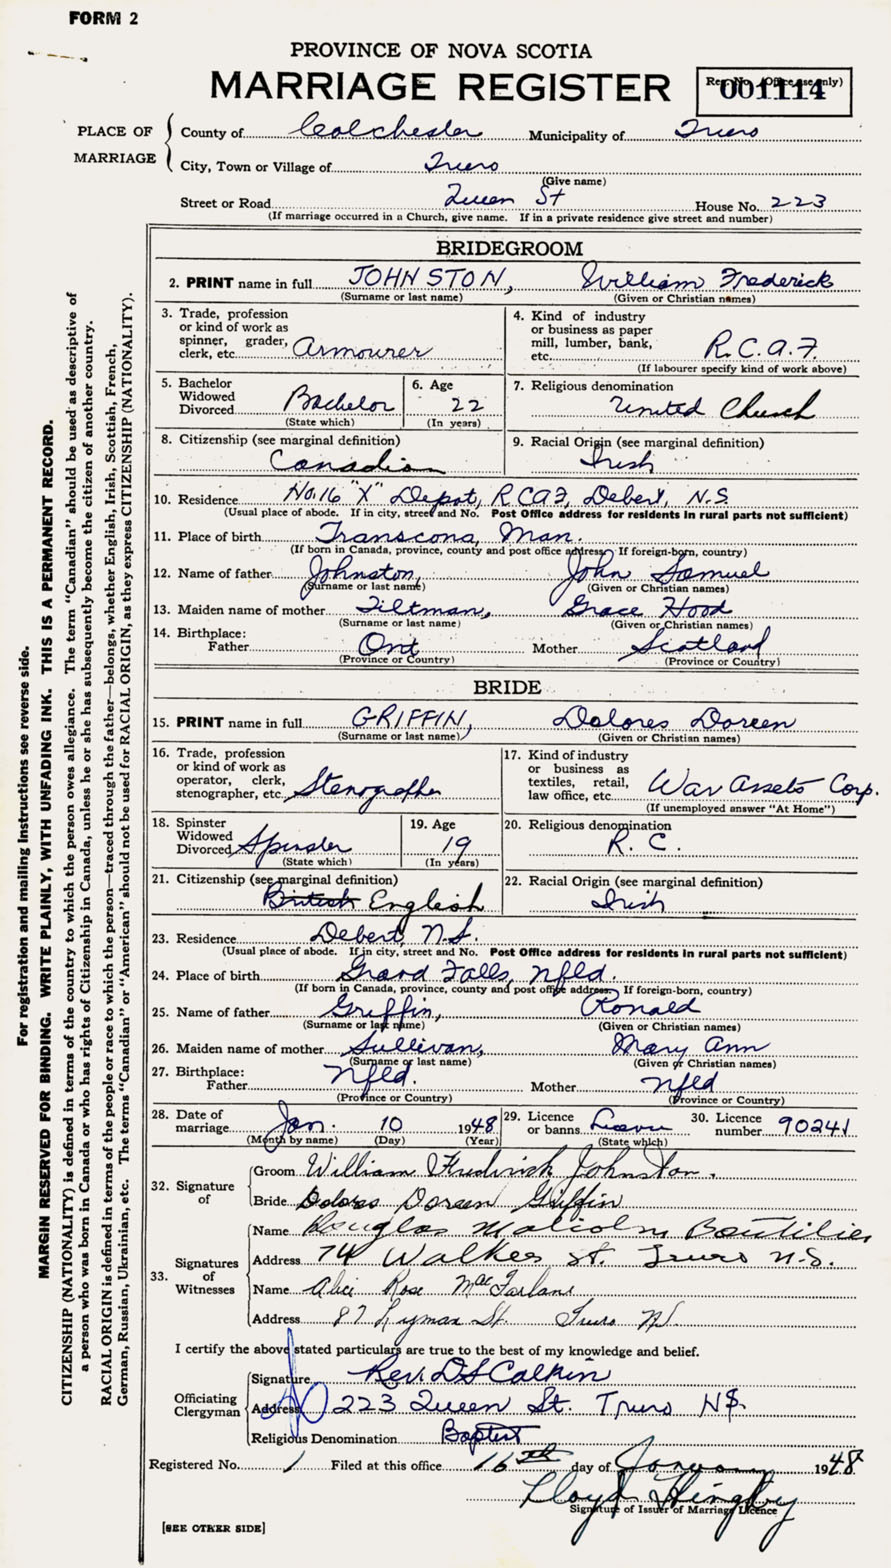 FORM 2
PROVINCE OF NOVA SCOTIA
MARRIAGE REGISTER
Reg. No. (Office use only)
001114
PLACE OF MARRIAGE
County of Colchester Municipality of Truro
City, Town or Village of Truro
(Give name)
Street or Road Queen St House No. 223
(If marriage occurred in a Church, give name. If in a private residence give street and number)
BRIDEGROOM
2. PRINT name in full JOHNSTON, William Frederick
(Surname or last name) (Given or Christian names)
3. Trade, profession or kind of work as spinner, grader, clerk, etc. Armourer
4. Kind of industry or business as paper mill, lumber, bank, etc. R.C.A.F.
(If labourer specify kind of work above)
5. Bachelor Widowed Divorced Bachelor
(State which)
6. Age 22
(In years)
7. Religious denomination United Church
8. Citizenship (see marginal definition) Canadian
9. Racial Origin (see marginal definition) Irish
10. Residence No. 16 "X" Depot, RCAF, Debert, N.S.
(Usual place of abode. If in city, street and No. Post Office address for residents in rural parts not sufficient)
11. Place of birth Transcona, Man.
(If born in Canada, province, county and post office address. If foreign-born, country)
12. Name of father Johnston, John Samuel
(Surname or last name) (Given or Christian names)
13. Maiden name of mother Tiltman, Grace Hood
(Surname or last name) (Given or Christian names)
14. Birthplace:
Father Ont Mother Scotland
(Province or Country) (Province or Country)
BRIDE
15. PRINT name in full GRIFFIN, Dolores Doreen
(Surname or last name) (Given or Christian names)
16. Trade, profession or kind of work as operator, clerk, stenographer, etc. Stenographer
17. Kind of industry or business as textiles, retail, law office, etc. War Assets Corp.
(If unemployed answer "At Home")
18. Spinster Widowed Divorced Spinster
(State which)
19. Age 19
(In years)
20. Religious denomination R. C.
21. Citizenship (see marginal definition) British English
22. Racial Origin (see marginal definition) Irish
23. Residence Debert, N.S.
(Usual place of abode. If in city, street and No. Post Office address for residents in rural parts not sufficient)
24. Place of birth Grand Falls, Nfld.
(If born in Canada, province, county and post office address. If foreign-born, country)
25. Name of father Griffin, Ronald
(Surname or last name) (Given or Christian names)
26. Maiden name of mother Sullivan, Mary Ann
(Surname or last name) (Given or Christian names)
27. Birthplace:
Father Nfld. Mother Nfld
(Province or Country) (Province or Country)
28. Date of marriage Jan. 10 1948
(Month by name) (Day) (Year)
29. Licence or banns
(State which)
30. Licence number 90241
32. Signature of
Groom William Frederick Johnston.
Bride Dolores Doreen Griffin
33. Signatures of Witnesses
Name Douglas Malcolm Boutilier
Address 74 Walker St. Truro N.S.
Name Alice Rose MacFarlane
Address 87 Lyman St. Truro NS.
I certify the above stated particulars are true to the best of my knowledge and belief.
Officiating Clergyman
Signature Rev. D S Calkin
Address 223 Queen St. Truro NS.
Religious Denomination Baptist
Registered No. 1 Filed at this office 16th day of January 1948
Lloyd
Signature of Issuer of Marriage Licence
[SEE OTHER SIDE]
For registration and mailing instructions see reverse side.
MARGIN RESERVED FOR BINDING. WRITE PLAINLY, WITH UNFADING INK. THIS IS A PERMANENT RECORD.
CITIZENSHIP (NATIONALITY) is defined in terms of the country to which the person owes allegiance. The term "Canadian" should be used as descriptive of
a person who was born in Canada or who has rights of Citizenship in Canada, unless he or she has subsequently become the citizen of another country.
RACIAL ORIGIN is defined in terms of the people or race to which the person—traced through the father—belongs, whether English, Irish, Scottish, French,
German, Russian, Ukrainian, etc. The terms "Canadian" or "American" should not be used for RACIAL ORIGIN, as they express CITIZENSHIP (NATIONALITY).